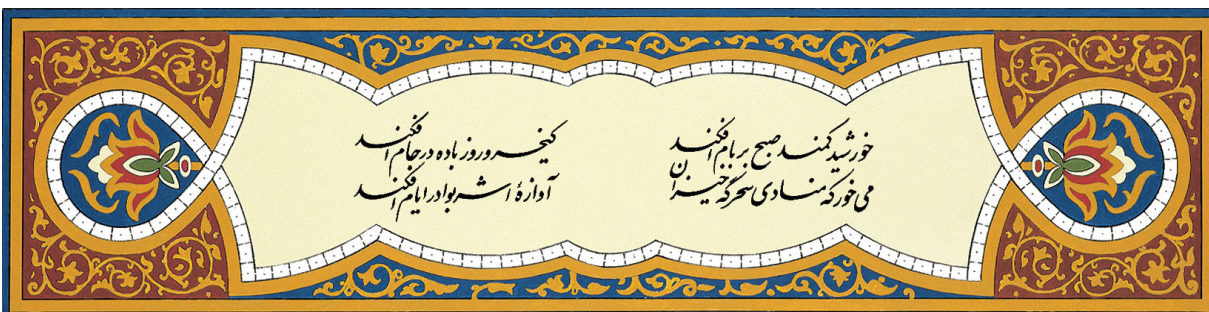 خورشید کمند صبح بر بام افکند کیخسرو روز باده در جام افکند
می خور که منادی سحرگه خیزان آوازهٔ اشربوا در ایام افکند